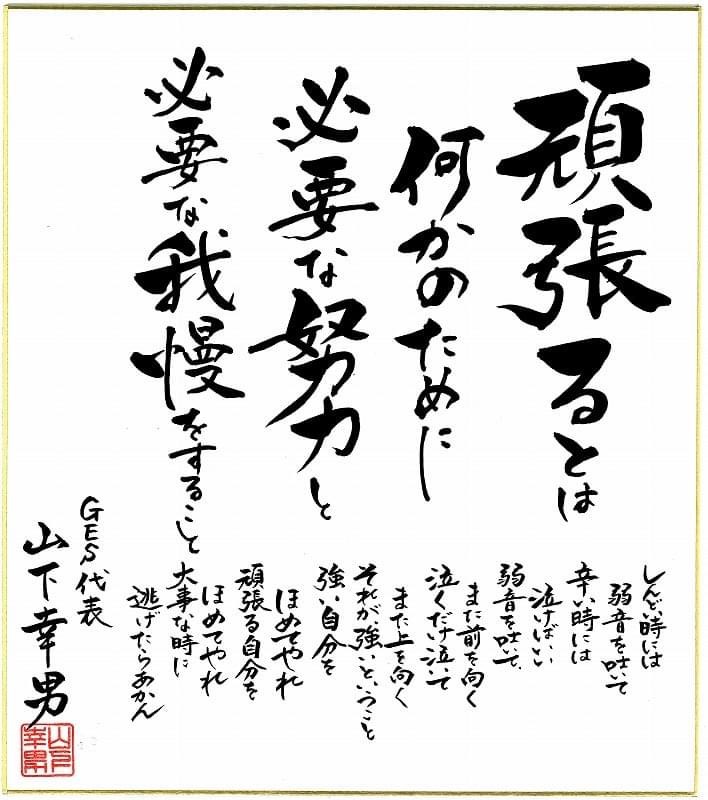 頑張るとは
何かのために
必要な努力と
必要な我慢をすること
しんどい時には
弱音を吐いて
辛い時には
泣けばいい
弱音を吐いて、
また前を向く
泣くだけ泣いて
また上を向く
それが強いということ
強い自分を
ほめてやれ
頑張る自分を
ほめてやれ
大事な時に
逃げたらあかん
GES代表
山下幸男
山下
幸男